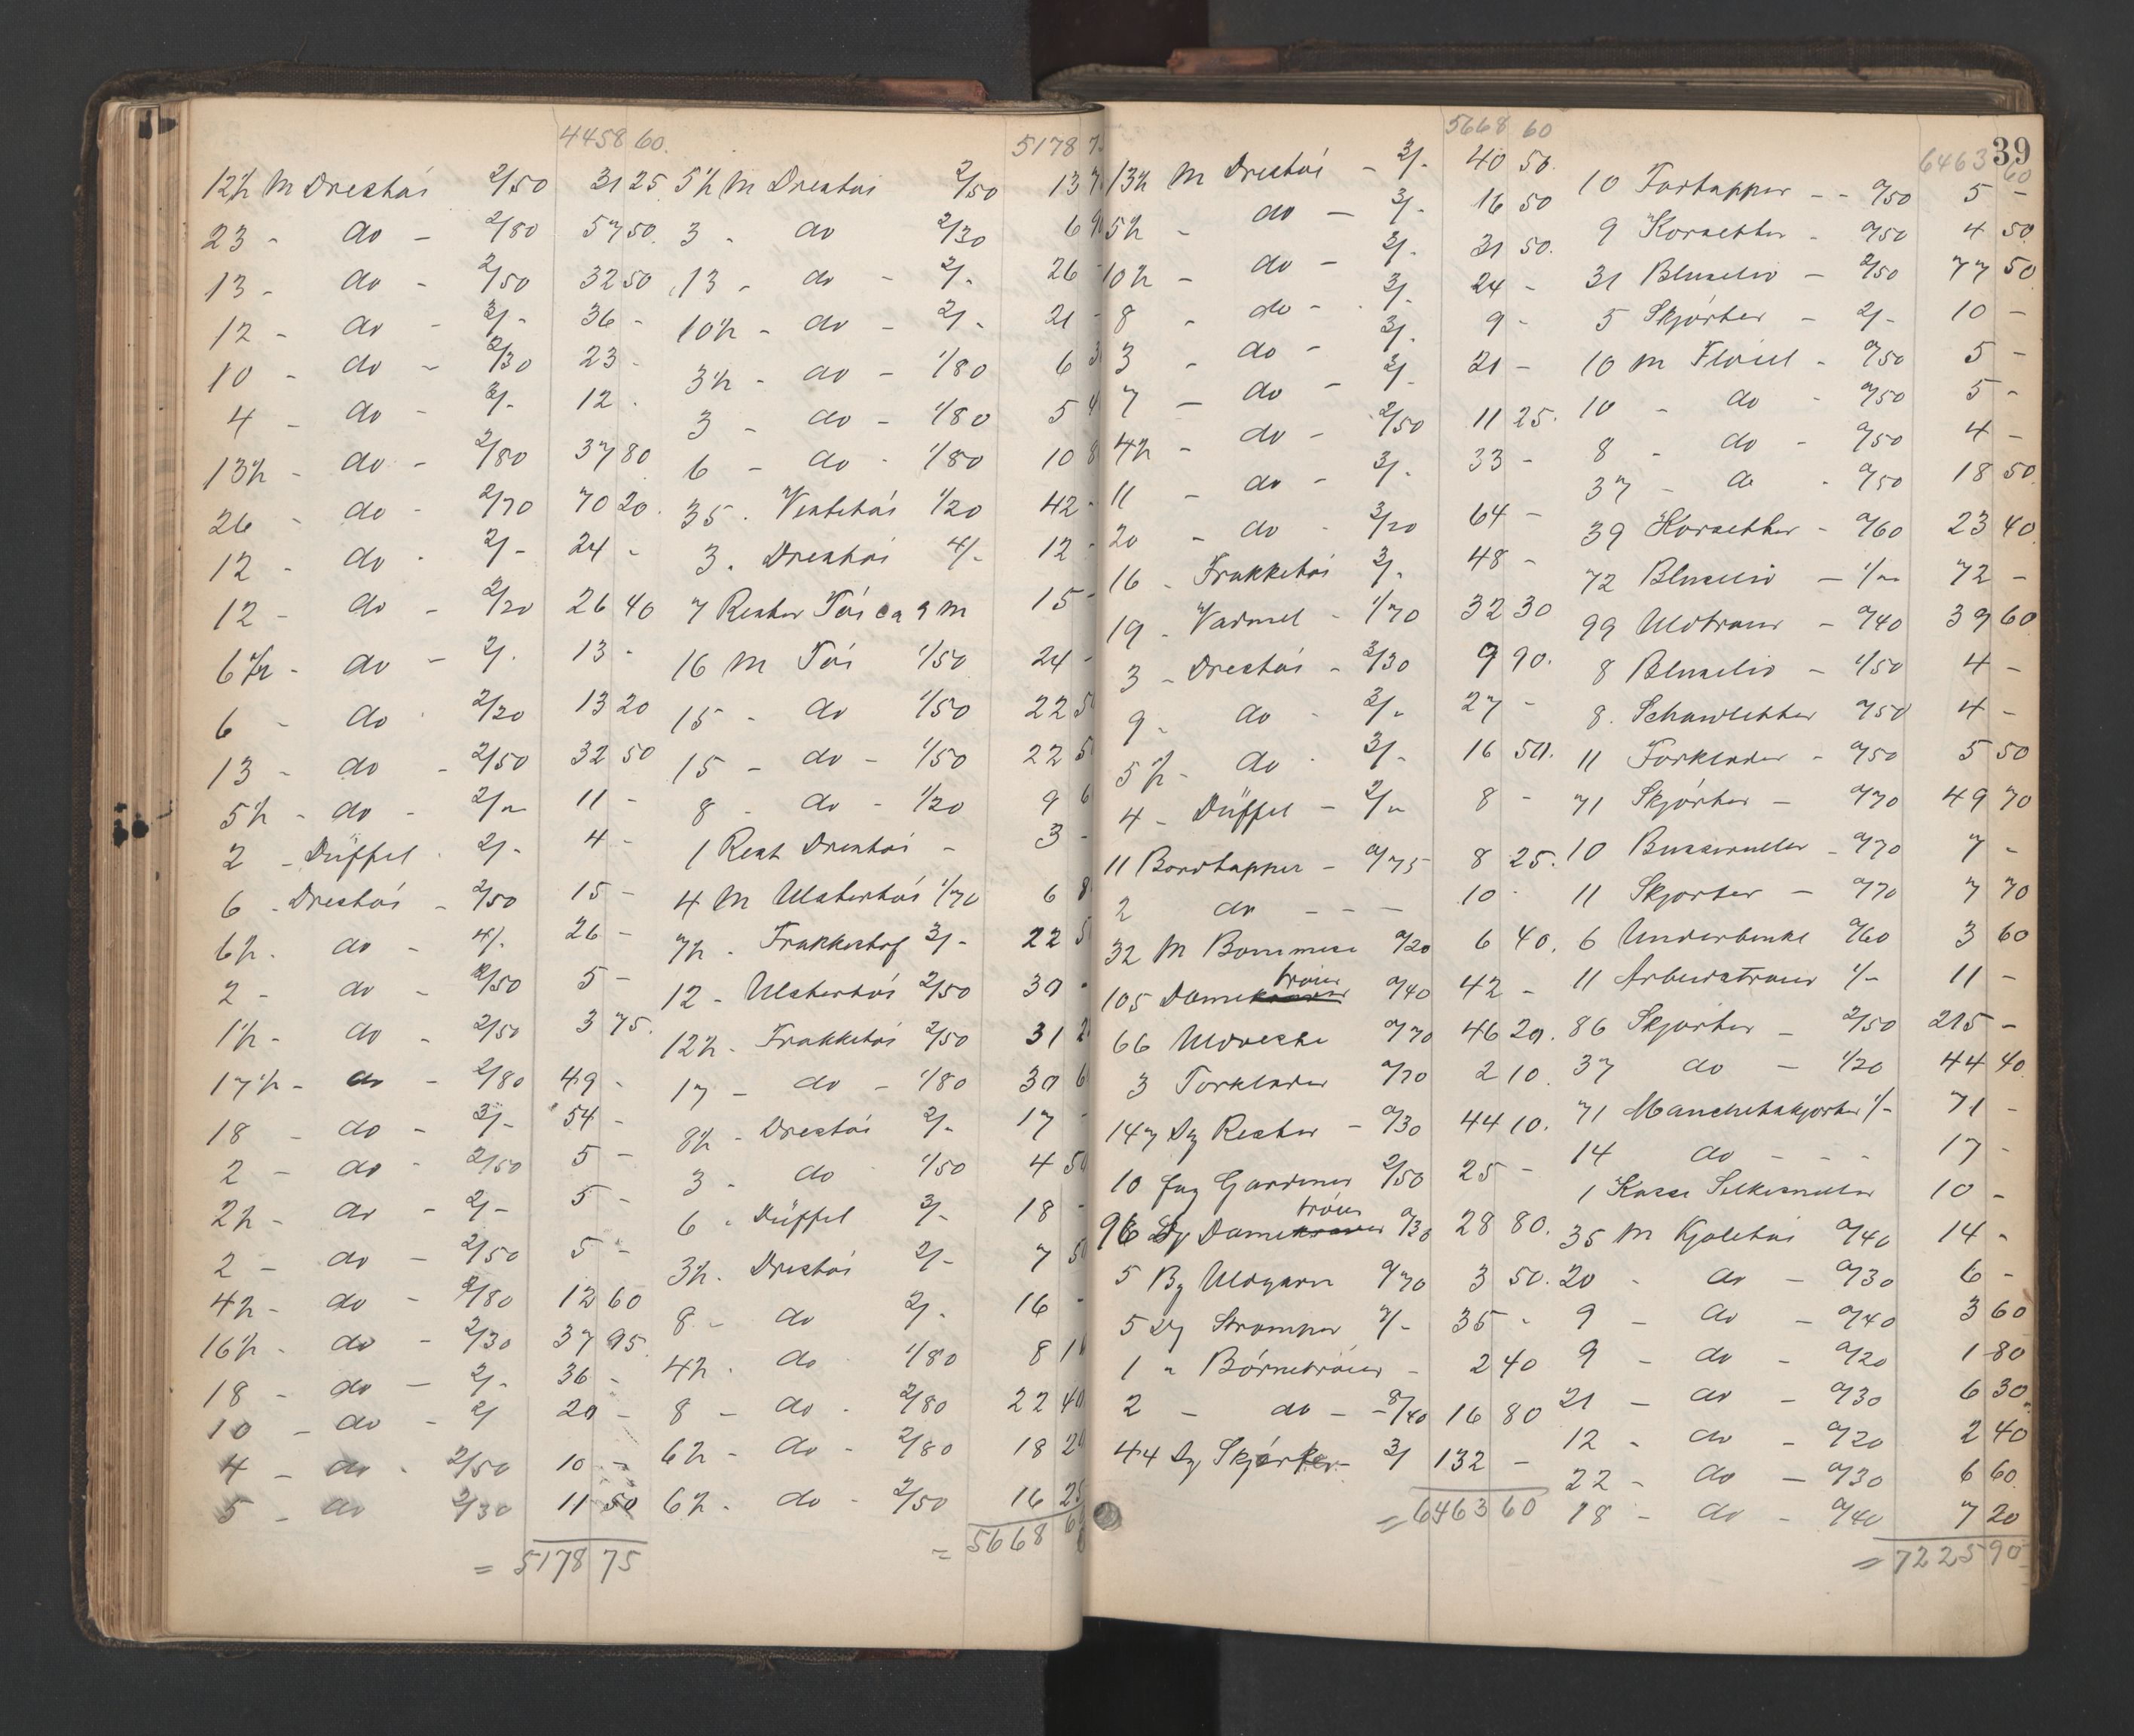 4458 60.
12½ M Drestøi 2/50 31 25
23 - do - 2/80 57 50.
13 - do - 2/50 32 50
12 - do - 3/- 36 -
10 - do - 2/30 23 -
4 - do - 3/- 12 -
13½ - do - 2/80 37 80
26 - do - 2/70 70 20.
12 - do - 2/- 24 -
12 - do - 2/20 26 40
6½ - do - 2/- 13 -
6 - do - 2/20 13 20
13 - do - 2/50 32 50
5½ - do - 2/- 11 -
2 - Düffel - 2/- 4 -
6 - Drestøi - 2/50 15 -
6½ - do - 4/- 26 -
2 - do - 2/50 5 -
1½ - do - 2/50 3 75.
17½ - do - 2/80 49 -
18 - do - 3/- 54 -
2 - do - 2/50 5 -
2½ - do - 2/- 5 -
2 - do - 2/50 5 -
4½ - do - 2/80 12 60
16½ - do - 2/30 37 95.
18 - do - 2/- 36 -
10 - do - 2/ 20 -
4 - do - 2/50 10 -
5 - do 2/30 11 50
= 5178 75
5178 7
5½ M Drestøi 2/50 13 7
3 - do 2/30 6 90
13 - do - 2/- 26 -
10½ - do - 2/- 21 -
3½ - do - 1/80 6 3
3 - do - 1/80 5 4
6 - do - 1/80 10 8
35 - Vestetøi 1/20 42 -
3 - Drestøi 4/- 12 -
7 Rester Tøi ca 9 m 15 -
16 M Tøi 1/50 24 -
15 - do 1/50 22 5
15 - do - 1/50 22 5
8 - do - 1/20 9 6
1 Rest Drestøi - 3 -
4 M Ulstertøi 1/70 6 8
7½ - Frakkestof 3/- 22 5
12 - Ulstertøi 2/50 30 -
12½ - Frakketøi 2/50 31 2
17 - do - 1/80 30 6
8½ - Drestøi 2/- 17 -
3 - do 1/50 4 50
6 - Düffel 3/- 18 -
3½ - Drestøi 2/- 7 50
8 - do 2/- 16 -
4½ - do - 1/80 8 1
8 - do - 2/80 22 40
6½ - do - 2/80 18 2
6½ - do - 2/50 16 25
= 5668 6
5668 60
13½ M Drestøi - 3/- 40 50.
5½ - do - 3/- 16 50
10½ - do - 3/- 31 50.
8 - do - 3/- 24 -
3 - do - 3/- 9 -
7 - do - 3/- 21 -
4½ - do - 2/50 11 25.
11 - do - 3/- 33 -
20 - do - 3/20 64 -
16 - Frakketøi 3/- 48 -
19 - Vadmel - 1/70 32 30
3 - Drestøi - 3/30 9 90.
9 - do - 3/- 27 -
5½ - do - 3/- 16 50.
4 - Düffel - 2/- 8 -
11 Bordtæpper - 0/75 8 25.
2 do - - - 10 -
32 M Bommesi 0/20 6 40.
105 Dame trøier 0/40 42 -
66 Uldveste 0/70 46 20.
3 Forklæder 0/70 2 10.
147 Dz Rester - 0/30 44 10.
10 Fag Gardiner 2/50 25 -
trøier
96 Dz Dame 0/30 28 80.
5 By Uldgarn 0/70 3 50.
5 Dz Strømper 7/- 35 -
1 " Børnetrøier - 2 40
2 - do - 8/40 16 80
44 Dz Skjørter 3/ 132 -
= 6463 60
39
6463 60
10 Fortæpper - - 0/50 5 -
9 Korsetter - 0/50 4 50.
31 Bluseliv - 2/50 77 50
5 Skjørter - 2/- 10 -
10 m Fløiel - 0/50 5 -
10 - do - 0/50 5 -
8 - do - 0/50 4 -
37 - do - 0/50 18 50.
39 Korsetter - 0/60 23 40.
72 Bluseliv - 1/- 72 -
99 Uldtrøier - 0/40 39 60
8 Bluseliv - 0/50 4 -
8. Schawletter 0/50 4 -
11 Forklæder - 0/50 5 50
71 Skjørter - 0/70 49 70
10 Busseruller - 0/70 7 -
11 Skjorter - 0/70 7 70
6 Underbenkl 0/60 3 60
11 Arbeidstrøier 1/- 11 -
86 Skjorter - 2/50 215 -
37 do - 1/20 44 40
71 Manchetskjorter 1/- 71 -
14 do - - - 17 -
1 Kasse Silkesnitter 10 -
35 M Kjoletøi 0/40 14 -
20 - do - 0/30 6 -
9 - do - 0/40 3 60
9 - do - 0/20 1 80
21 - do - 0/30 6 30.
12 - do - 0/20 2 40
22 - do - 0/30 6 60.
18 - do - 0/40 7 20
= 7225 90